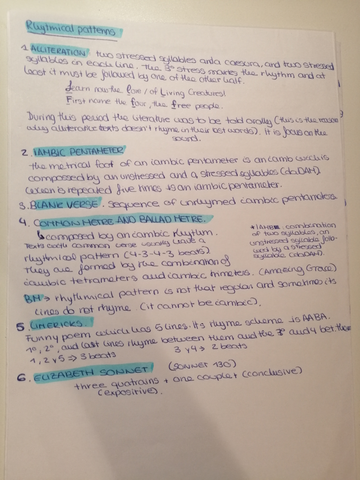 Rhytmical patterns.
1. ALLITERATION: two stressed syllables and a caesura, and two stressed
syllables in each line. The 3º stress makes the rhythm and at
least it must be followed by one of the other half.
Learn now the flam/of Living Creatures!
First name the four, the free people.
During this period the literature was to be told orally (this is the reason
why alliterative texts doesn't rhyme in their last words). It is focus on the
sound.
2. IAMBIC PENTAMETER
The metrical foot of an iambic pentameter is an iamb which is
composed by an unstressed and a stressed syllables (daDAH)
When is repeated five times is an iambic pentameter.
3. BLANK VERSE. Sequence of unrhymed iambic pentameters.
4. COMMON METRE AND BALLAD METRE.
↳ composed by an iambic rhythm.
Texts with common verse usually have a
rhythmical pattern (4-3-4-3 beats)
They are formed by the combination of
iambic tetrameters and iambic trimeters. (Amazing Grace)
* IAMB: combination
of two syllables, an
unstressed syllable follo-
wed by a stressed
syllable (daDAH)
BM → rhythmical pattern is not that regular and sometimes its
lines do not rhyme (it cannot be iambic).
5. LIMERICKS.
Funny poem which has 5 lines. Its rhyme scheme is AABA.
1º, 2º, and last lines rhyme between them and the 3º and 4 bet. them
1, 2 y 5 → 3 beats 3 y 4 → 2 beats
6. ELIZABETH SONNET (SONNET 130)
three quatrains + one couplet (conclusive)
(expositive).